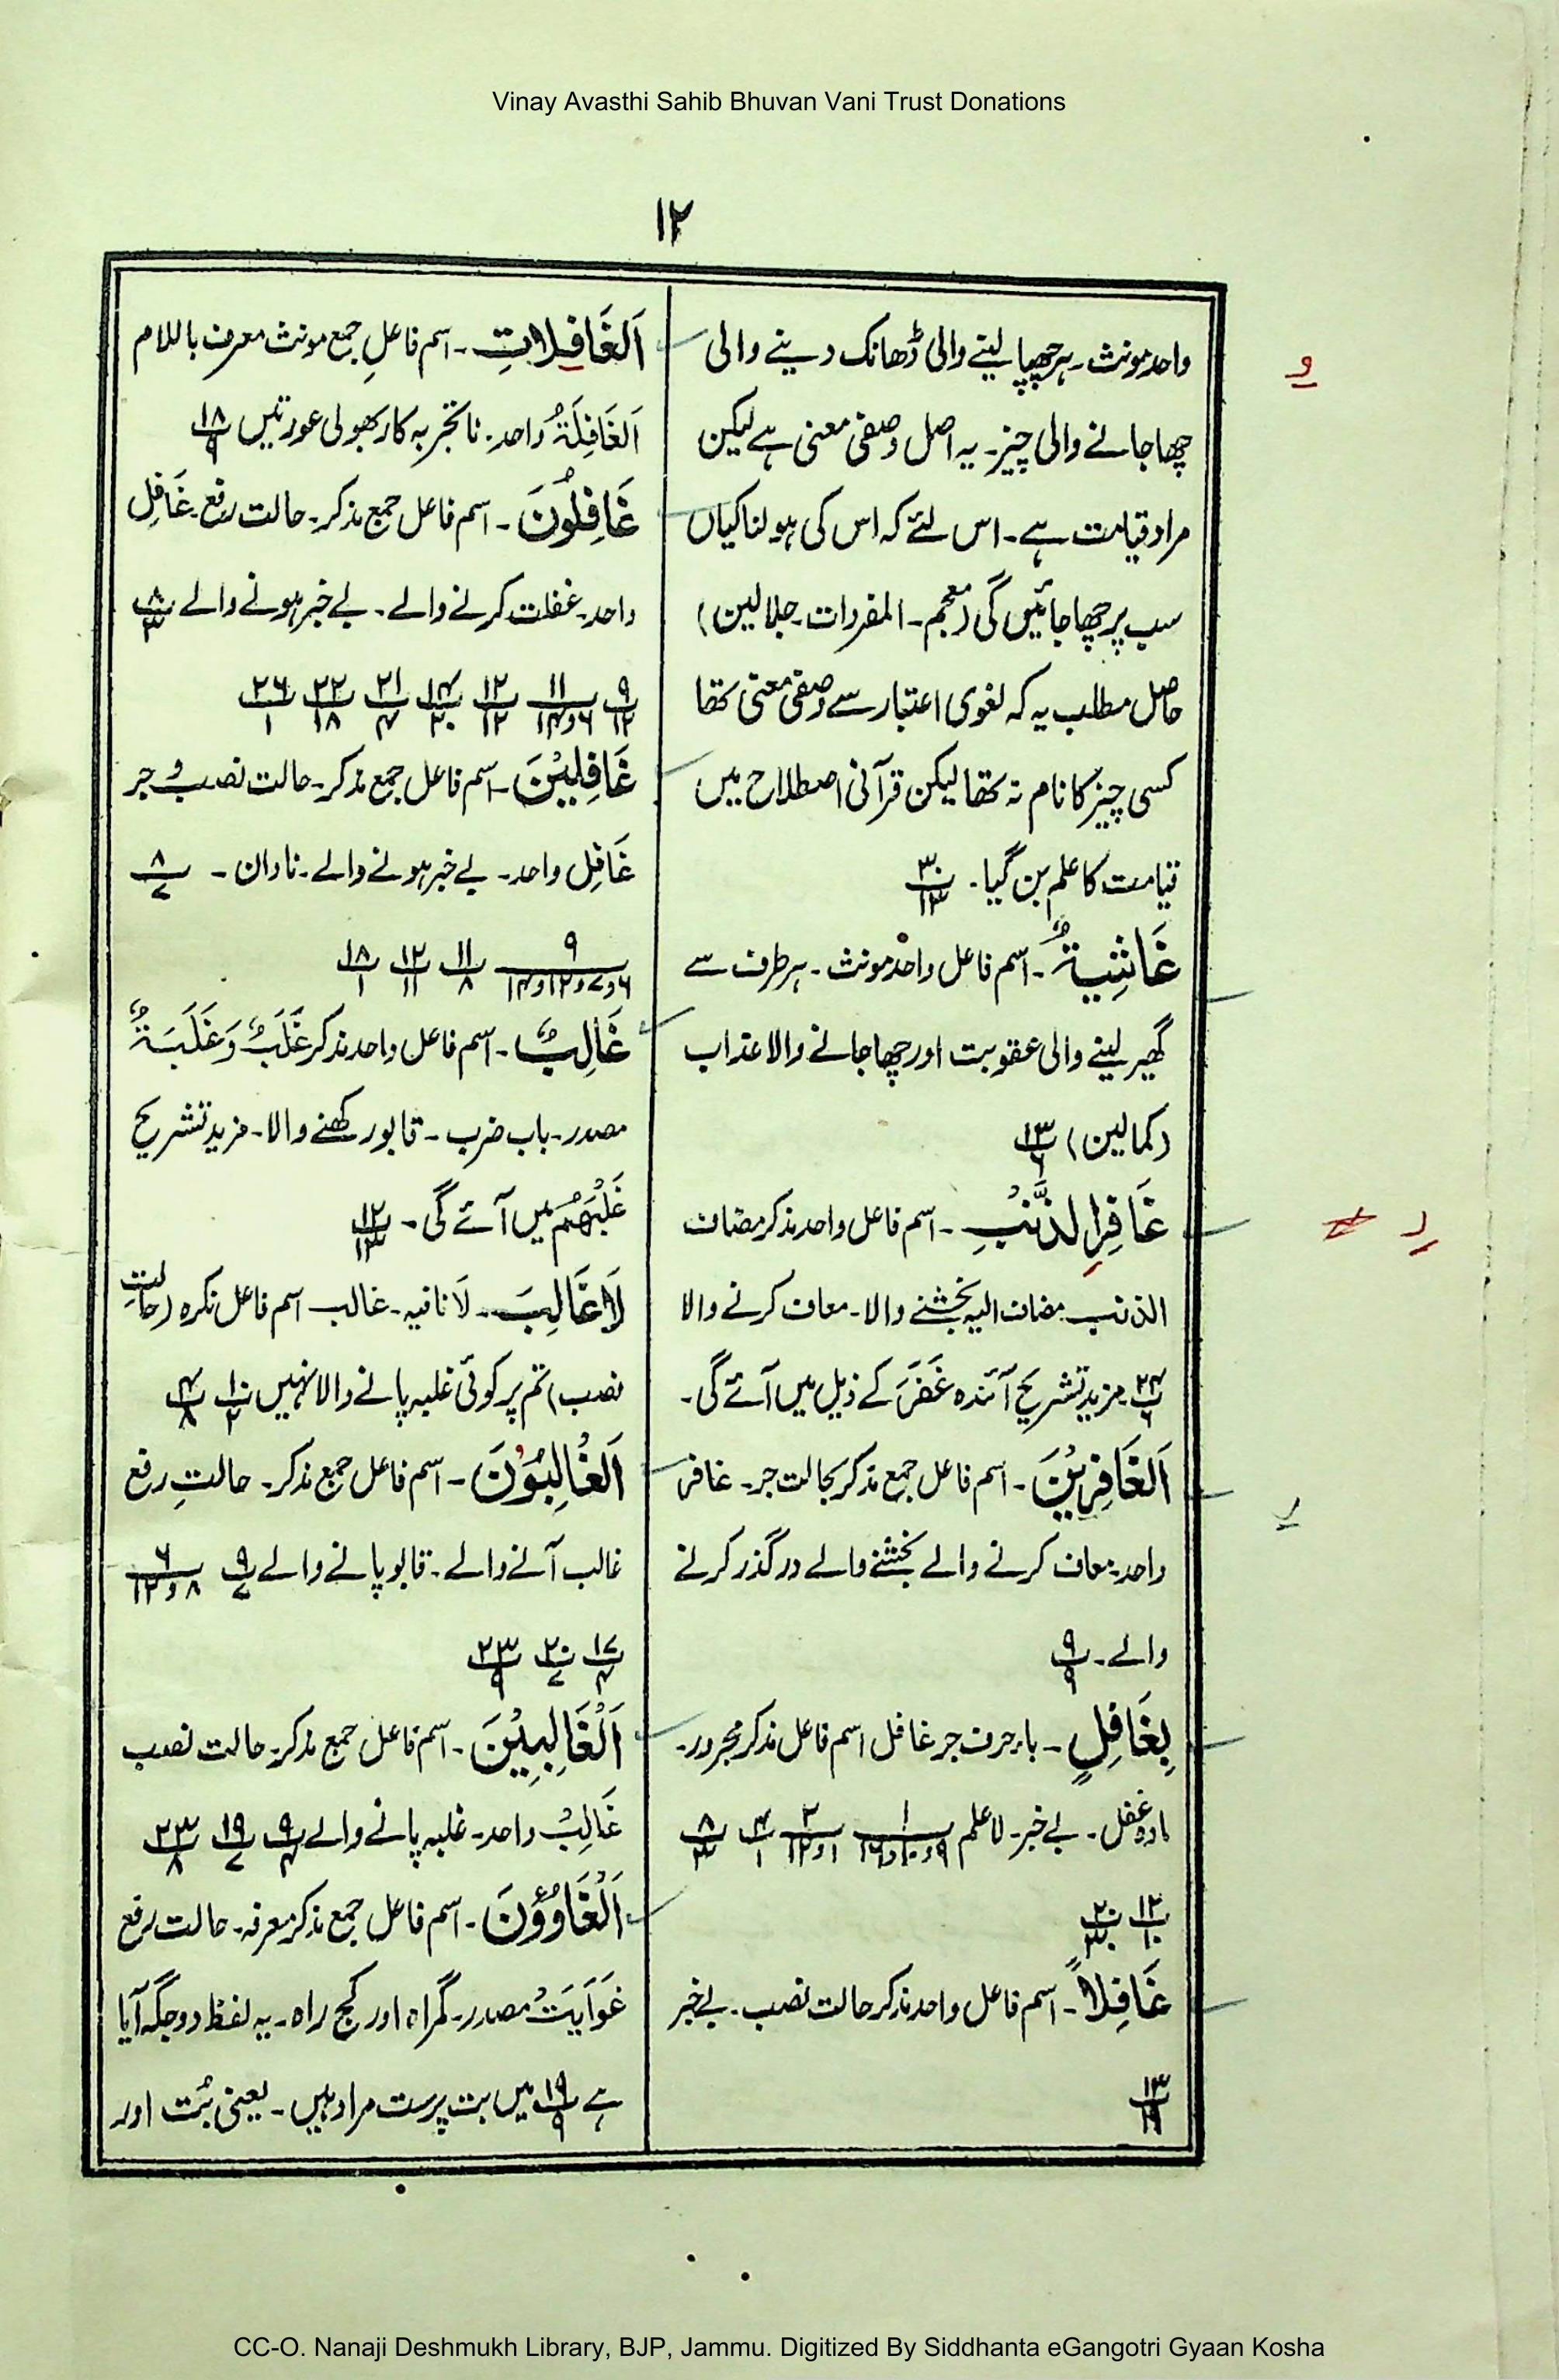 Vinay Avasthi Sahib Bhuvan Vani Trust Donations
۱۲
واحد مونث۔ ہر چھپا لینے والی ڈھانک دینے والی
چھا جانے والی چیز۔ یہ اصل وصفی معنی ہے لیکن
مراد قیامت ہے۔ اس لئے کہ اس کی ہولناکیاں
سب پر چھا جائیں گی (معجم۔ المفردات۔ جلالین)
حاصل مطلب یہ کہ لغوی اعتبار سے وصفی معنی تھا
کسی چیز کا نام نہ تھا لیکن قرآنی اصطلاح میں
قیامت کا علم بن گیا۔ ۳۰/۱۳
غَاشِیَۃٌ۔ اسم فاعل واحد مونث۔ ہر طرف سے
گھیر لینے والی عقوبت اور چھا جانے والا عذاب
(کمالین) ۱۳/۶
غَافِرِ الذَّنْبِ۔ اسم فاعل واحد مذکر مضاف
الذنب مضاف الیہ بخشنے والا۔ معاف کرنے والا
۲۴/۶ مزید تشریح آئندہ غَفَرَ کے ذیل میں آئے گی۔
اَلْغَافِرِیْنَ۔ اسم فاعل جمع مذکر بحالت جر۔ غافر
واحد۔ معاف کرنے والے بخشنے والے درگذر کرنے
والے۔ ۹/۹
بِغَافِلٍ۔ با۔ حرف جر غافل اسم فاعل مذکر مجرور۔
مادہ غفل۔ بے خبر۔ لا علم ۱/۹و۱۰و۱۶ ۲/۱و۱۲ ۴/۱ ۸/۳
۱۲/۱۰ ۲۰/۳
غَافِلاً۔ اسم فاعل واحد مذکر حالت نصب۔ بے خبر
۱۳/۱۹
اَلْغَافِلَاتِ۔ اسم فاعلِ جمع مونث معرف باللام
اَلْغَافِلَۃُ واحد۔ ناتجربہ کار بھولی عورتیں ۱۸/۹
غَافِلُوْنَ۔ اسم فاعل جمع مذکر۔ حالت رفع۔ غَافِل
واحد۔ غفلت کرنے والے۔ بے خبر ہونے والے ۸/۳
۹/۱۲ ۱۱/۶و۱۴ ۱۲/۱۲ ۱۴/۲۰ ۲۱/۴ ۲۲/۱۸ ۲۶/۱
غَافِلِیْنَ۔ اسم فاعل جمع مذکر۔ حالت نصب و جر
غَافِل واحد۔ بے خبر ہونے والے۔ نادان۔ ۸/۷
۹/۶و۷و۱۲و۱۴ ۱۱/۸ ۱۲/۱۱ ۱۸/۱
غَالِبٌ۔ اسم فاعل واحد مذکر غَلَبٌ وَ غَلَبَۃٌ
مصدر۔ باب ضرب۔ قابو رکھنے والا۔ مزید تشریح
غَلْبِھِمْ میں آئے گی۔ ۱۲/۱۳
لَا غَالِبَ۔ لَا نافیہ۔ غالب اسم فاعل نکرہ (حالتِ
نصب) تم پر کوئی غلبہ پانے والا نہیں ۱۰/۲ ۴/۸
اَلْغَالِبُوْنَ۔ اسم فاعل جمع مذکر۔ حالتِ رفع
غالب آنے والے۔ قابو پانے والے ۹/۷ ۶/۸و۱۲
۱۷/۴ ۲۰/۷ ۲۳/۹
اَلْغَالِبِیْنَ۔ اسم فاعل جمع مذکر۔ حالت نصب
غَالِبٌ واحد۔ غلبہ پانے والے ۹/۴ ۱۹/۷ ۲۳/۸
اَلْغَاوٗنَ۔ اسم فاعل جمع مذکر معرفہ۔ حالت رفع
غَوَایَتٌ مصدر۔ گمراہ اور کج راہ۔ یہ لفظ دو جگہ آیا
ہے ۱۹/۹ میں بت پرست مراد ہیں۔ یعنی بُت اور
CC-O. Nanaji Deshmukh Library, BJP, Jammu. Digitized By Siddhanta eGangotri Gyaan Kosha